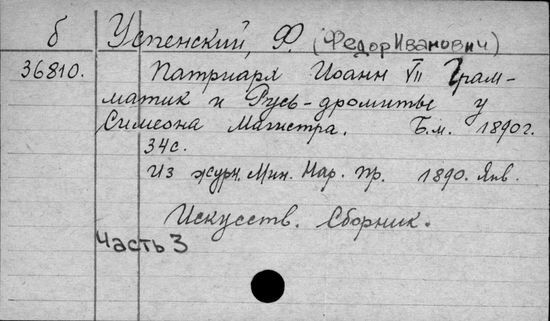 б Успенский, Ф. (Федор Иванович)
36810. Патриарх Иоанн VII Грам-
матик и Русь-дромиты у
Симеона Магистра. Б.м. 1890г.
34с.
Из журн. Мин. Нар. Пр. 1890. Янв.
Искусств. Сборник.
Часть 3